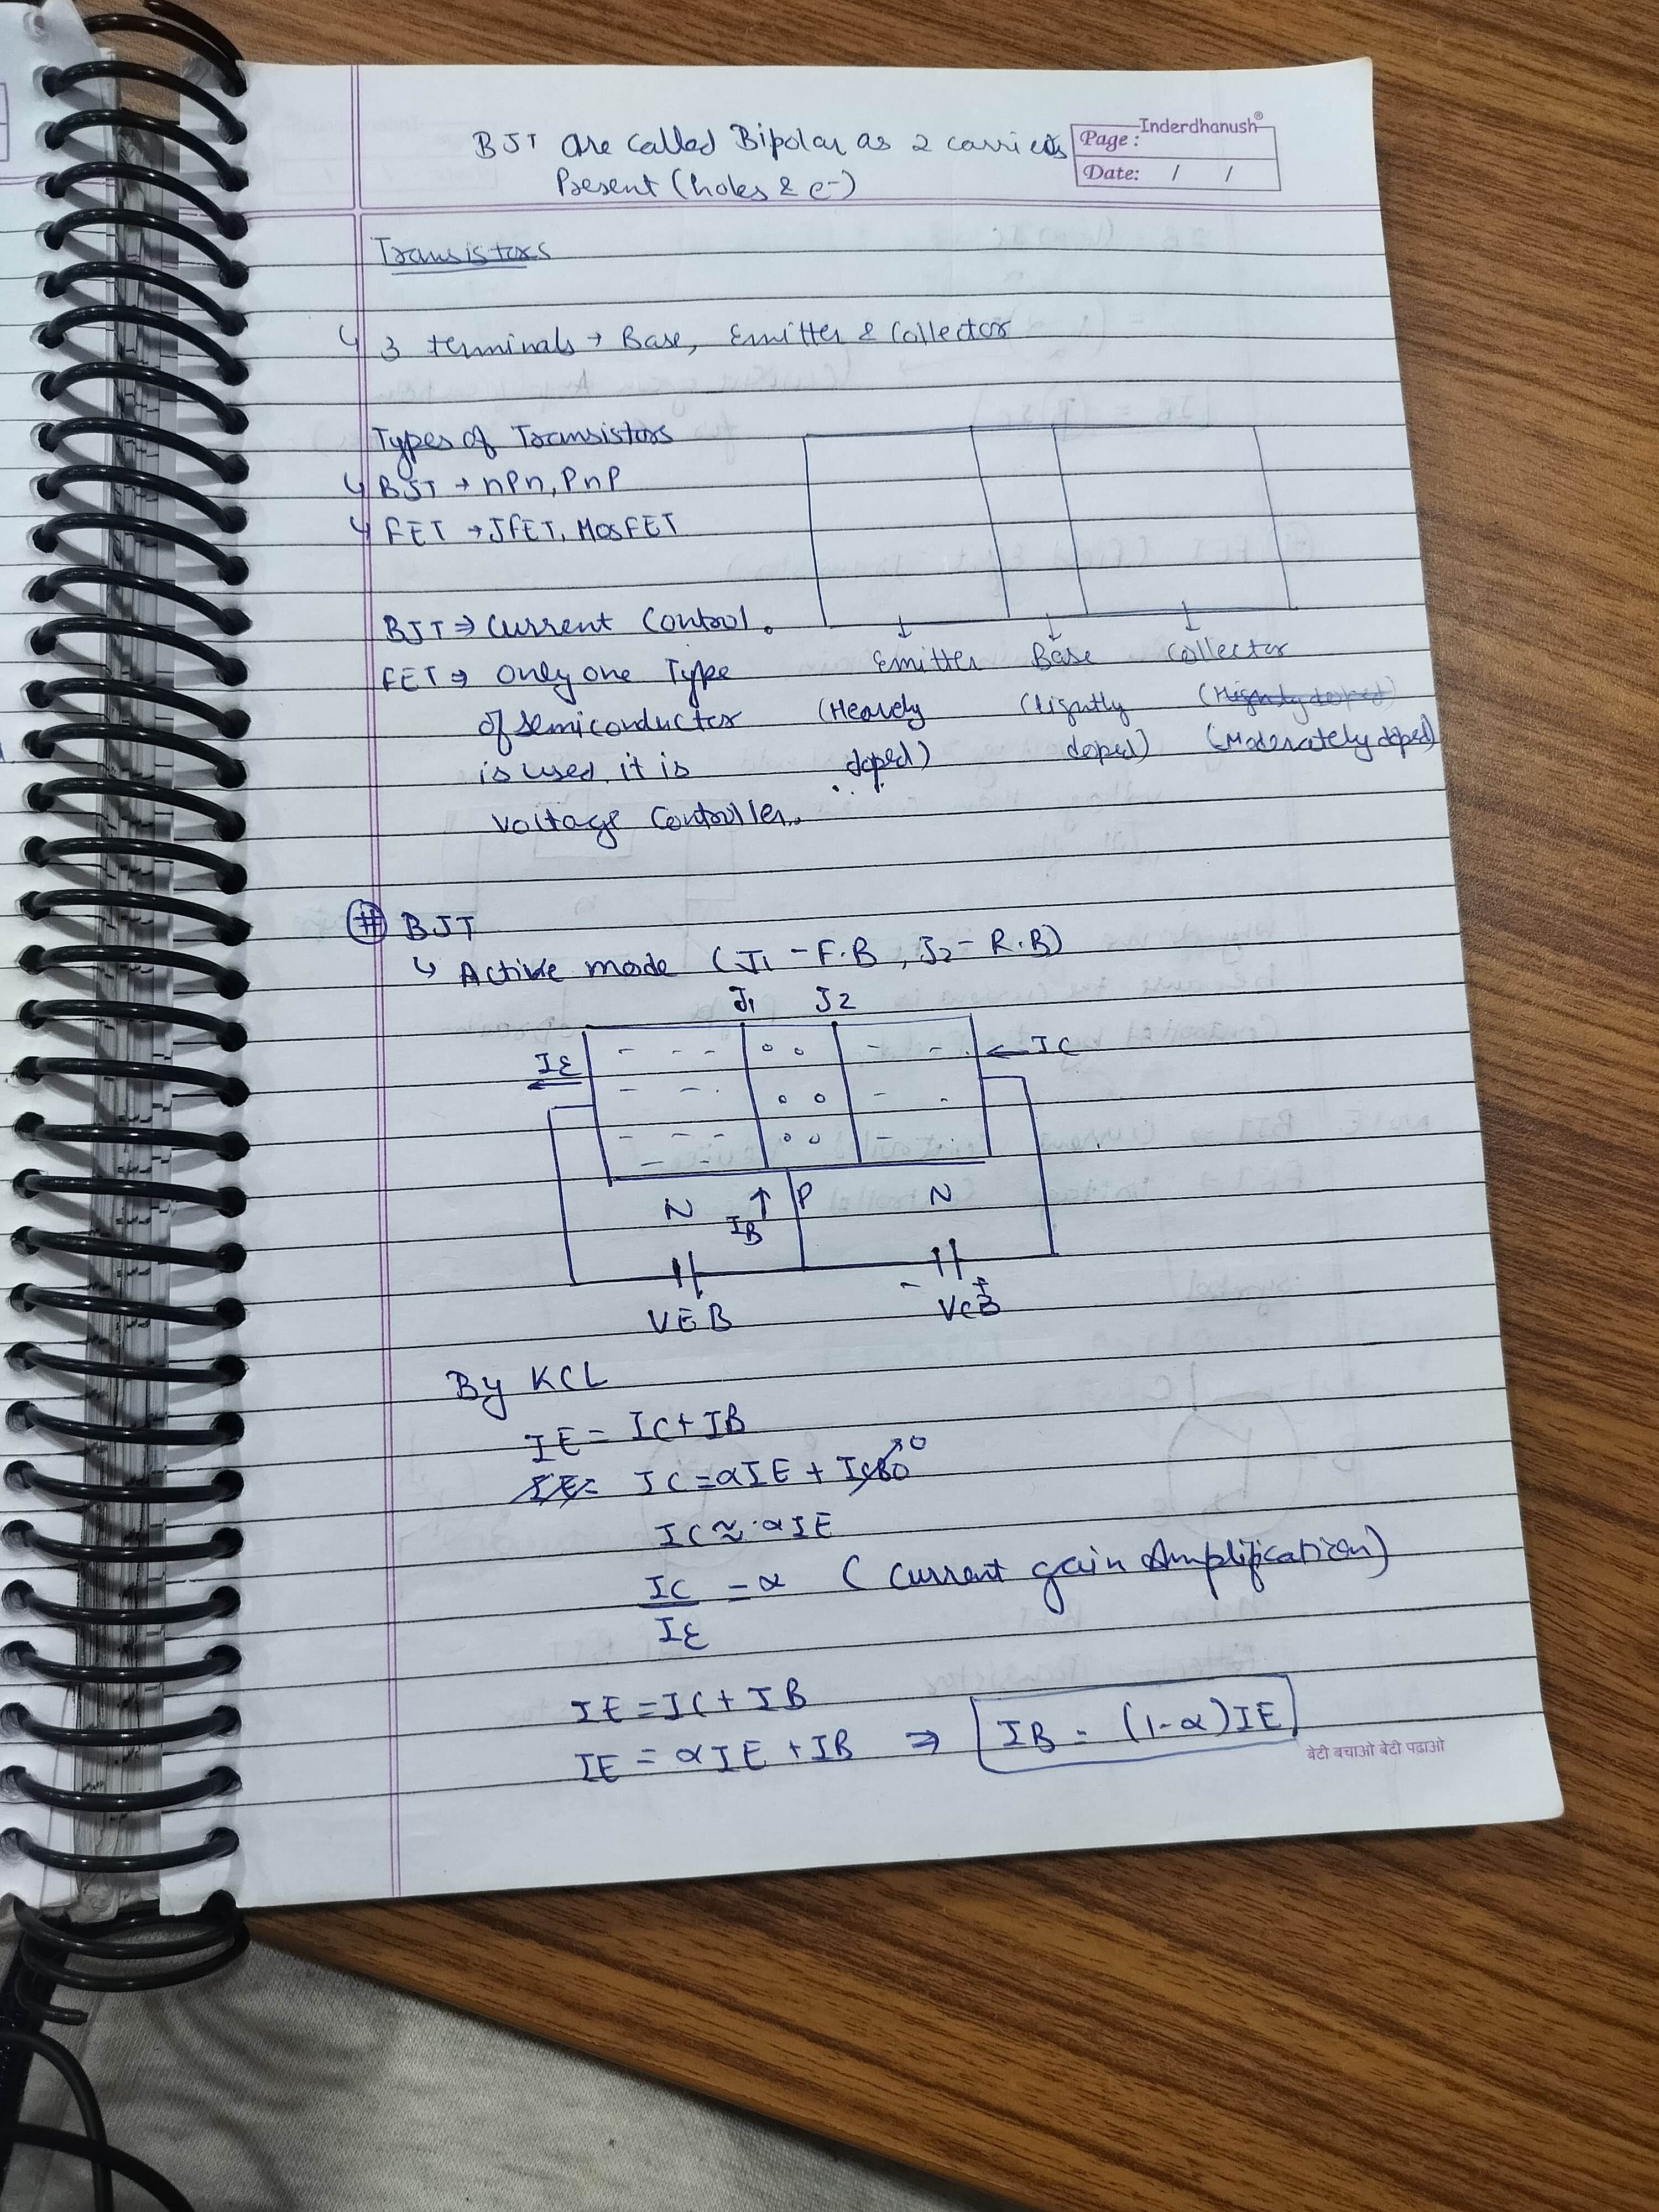 BJT are called Bipolar as 2 carriers
Present (holes & e-)
Inderdhanush®
Page :
Date: / /
Transistors
↳ 3 terminals → Base, Emitter & Collector
Types of Transistors
↳ BJT → nPn, PnP
↳ FET → JFET, MosFET
BJT ⇒ Current Control.
FET ⇒ Only one Type
of semiconductor
is used, it is
voltage Controller.
Emitter Base Collector
(Heavely (lightly
doped) doped) (Moderately doped)
# BJT
↳ Active mode (J1 - F.B, J2 - R.B)
J1 J2
IE ← IC
N IB ↑ P N
- +
VEB VCB
By KCL
IE = IC + IB
IE = IC = αIE + ICBO ↗ 0
IC ≈ αIE
IC = α (Current gain Amplification)
IE
IE = IC + IB
IE = αIE + IB ⇒ IB = (1-α)IE
बेटी बचाओ बेटी पढाओ